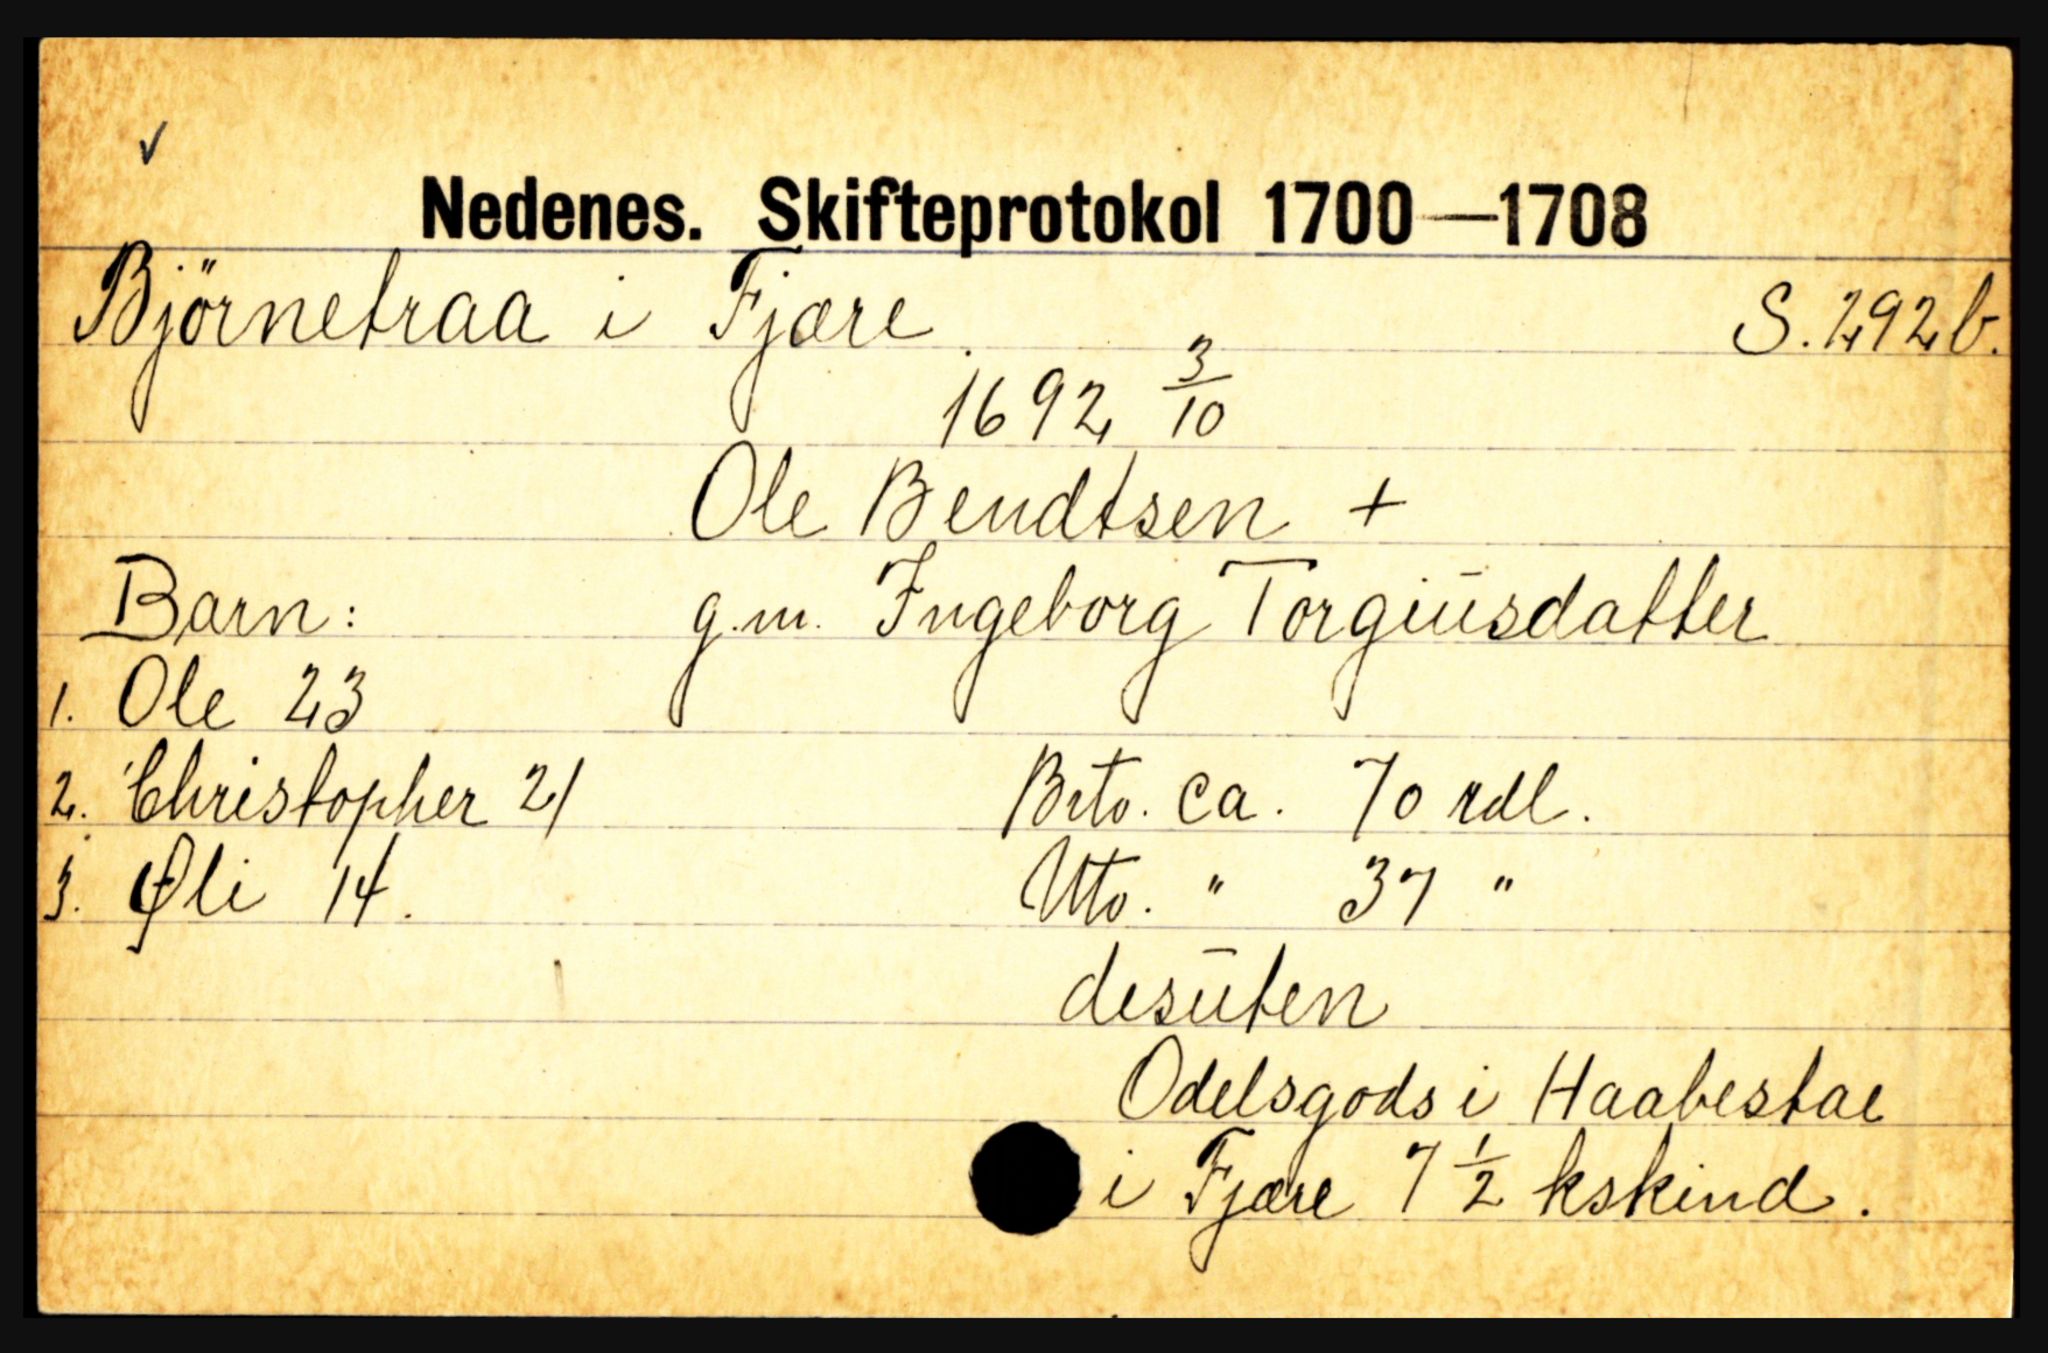 ✓
Nedenes. Skifteprotokol 1700—1708
Björnetraa i Fjære. S. 292 b.
1692 3/10
Ole Bendtsen +
Barn: g.m. Ingeborg Torgiūsdatter
1. Ole 23
2. Christopher 21 Brto. ca. 70 rdl.
3. Øli 14. Nto. " 37 "
desūten
Odelsgods i Haabestae
i Fjære 7 1/2 kskind.